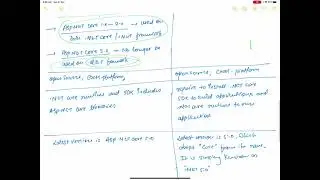 → ASP.NET Core 1.x – 2.x → used on
both .NET Core / .NET framework
→ ASP.NET Core 3.x → no longer be
used on .NET framework
open source, cross-platform
open source, cross-platform
.NET core runtime and SDK includes
ASP.NET core libraries
require to install .NET core
SDK to build applications and
.NET core runtime to run
application
Latest version is ASP.NET core 5.0
Latest version is 5.0, which
drops "core" from its name.
It is simply known as
".NET 5.0"